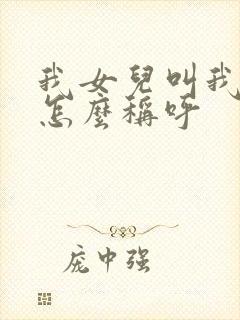 我女兒叫我
怎麼稱呼
庞中强